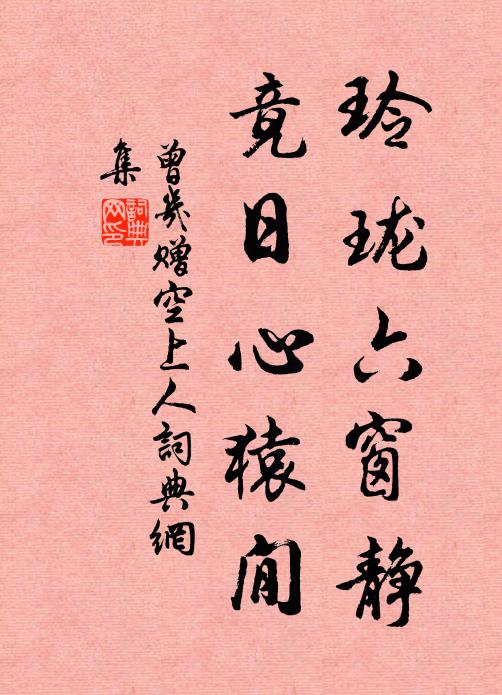 玲珑六窗静
竟日心猿闲
曾几赠空上人词典網
集
詞典
网印